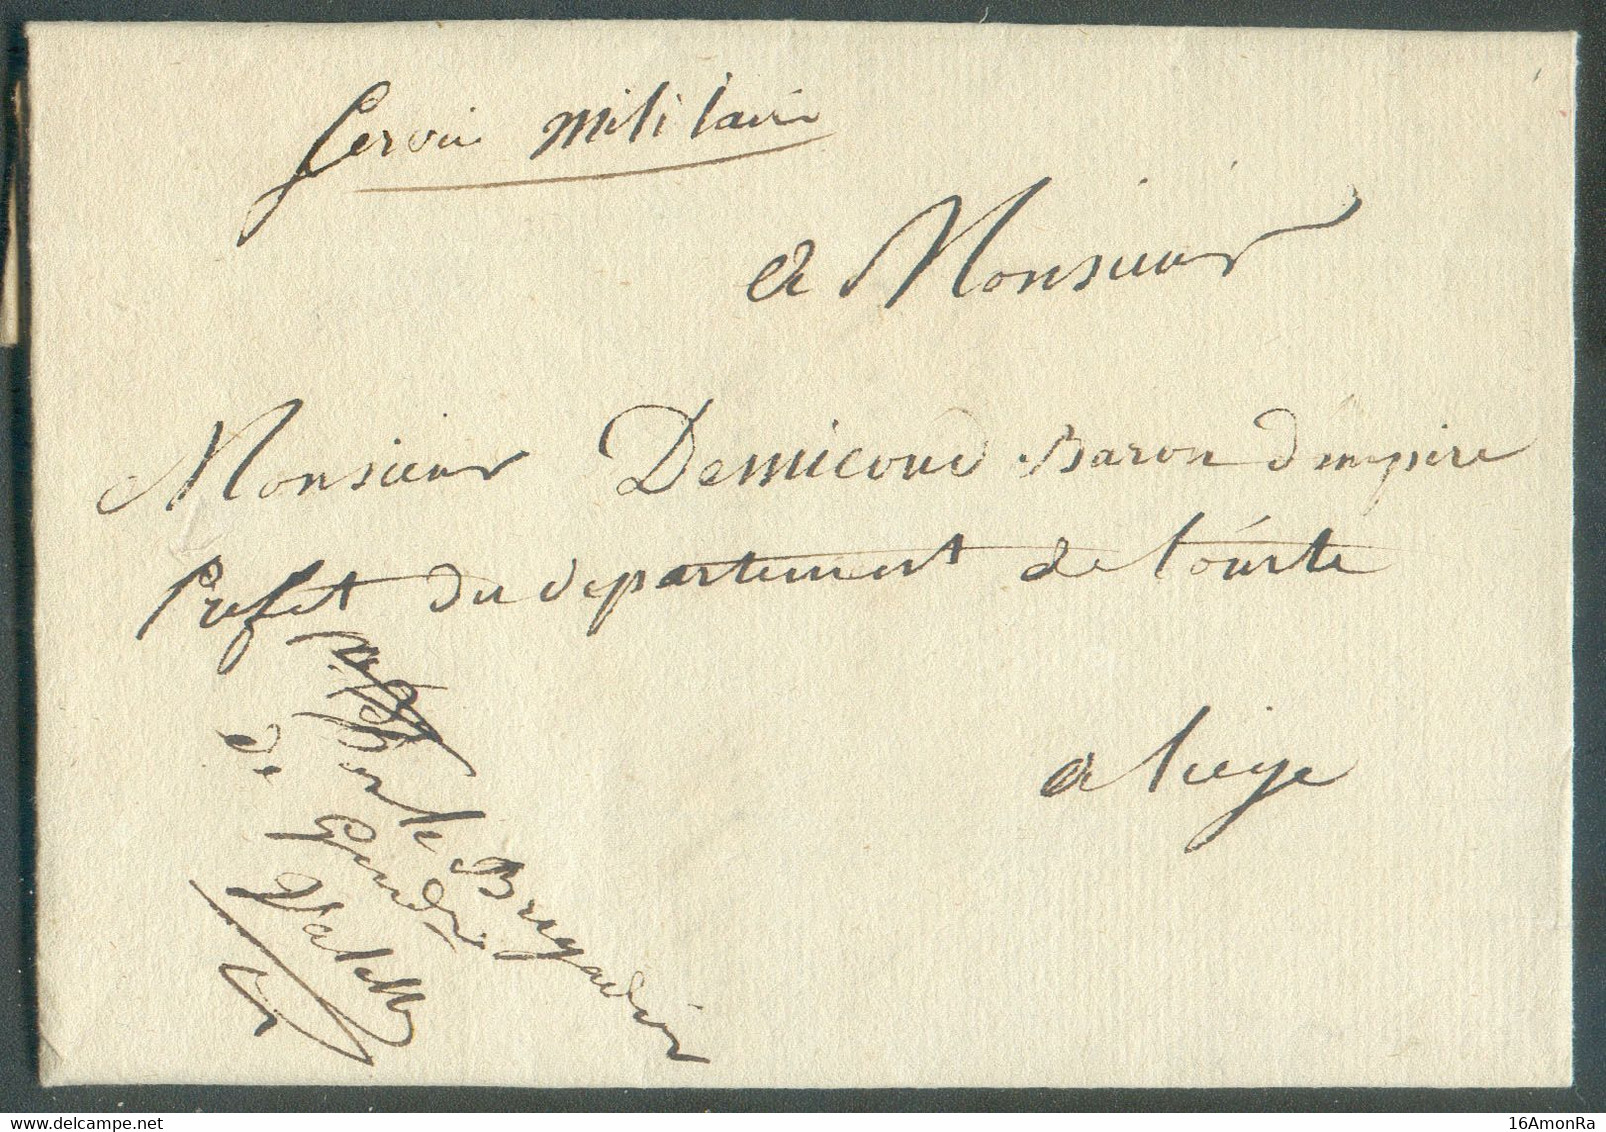 Servici militairi
a Monsieur
Monsieur Demicoud Baron d'empire
Prefet du departement de l'ourte
a liege
Par le Brigadier
de Gendri
Valette
16AmonRa